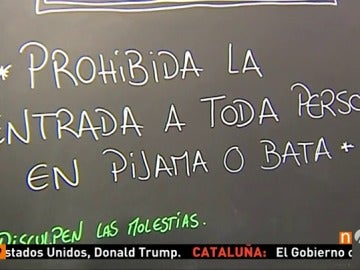 * PROHIBIDA LA
ENTRADA A TODA PERSO
EN PIJAMA O BATA *
DISCULPEN LAS MOLESTIAS.
stados Unidos, Donald Trump. CATALUÑA: El Gobierno c